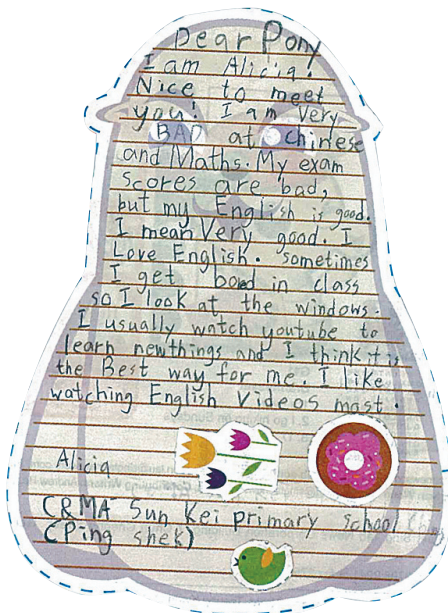 Dear Pony
I am Alicia!
Nice to meet
you! I am Very
BAD at Chinese
and Maths. My exam
scores are bad,
but my English is good.
I mean Very good. I
Love English. sometimes
I get bored in class
so I look at the windows.
I usually watch youtube to
learn newthings and I think it is
the Best way for me. I like
watching English Videos mast.
Alicia
C&MA Sun Kei primary school
(Ping shek)